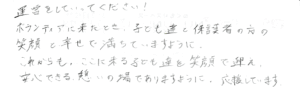 運営をしていってください!
ボランティアに来たとき、子ども達と保護者の方の
笑顔と幸せで満ちていますように。
これからも、ここに来る子ども達を笑顔で迎え、
安心できる憩いの場でありますように。応援しています。